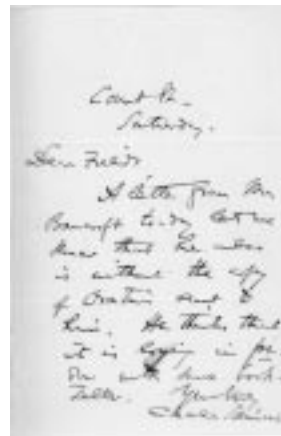 Court St.
Saturday.
Dear Fields
A letter from Mr
Bancroft to-day let me
know that he also
is without the copy
of Oration sent to
him. He thinks that
it is lying in
with some book-
Charles